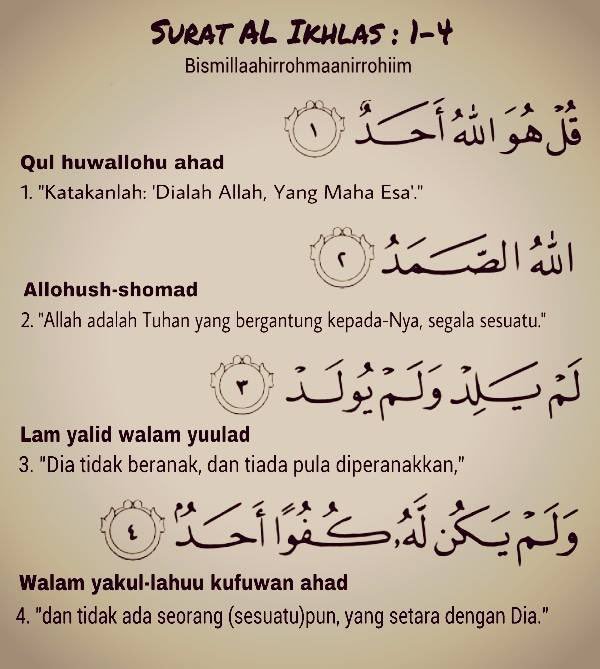 SURAT AL IKHLAS : 1-4
Bismillaahirrohmaanirrohiim
قُلْ هُوَ اللّٰهُ أَحَدٌ ١
Qul huwallohu ahad
1. "Katakanlah: 'Dialah Allah, Yang Maha Esa'."
اللّٰهُ الصَّمَدُ ٢
Allohush-shomad
2. "Allah adalah Tuhan yang bergantung kepada-Nya, segala sesuatu."
لَمْ يَلِدْ وَلَمْ يُولَدْ ٣
Lam yalid walam yuulad
3. "Dia tidak beranak, dan tiada pula diperanakkan,"
وَلَمْ يَكُن لَّهُۥ كُفُوًا أَحَدٌۢ ٤
Walam yakul-lahuu kufuwan ahad
4. "dan tidak ada seorang (sesuatu)pun, yang setara dengan Dia."